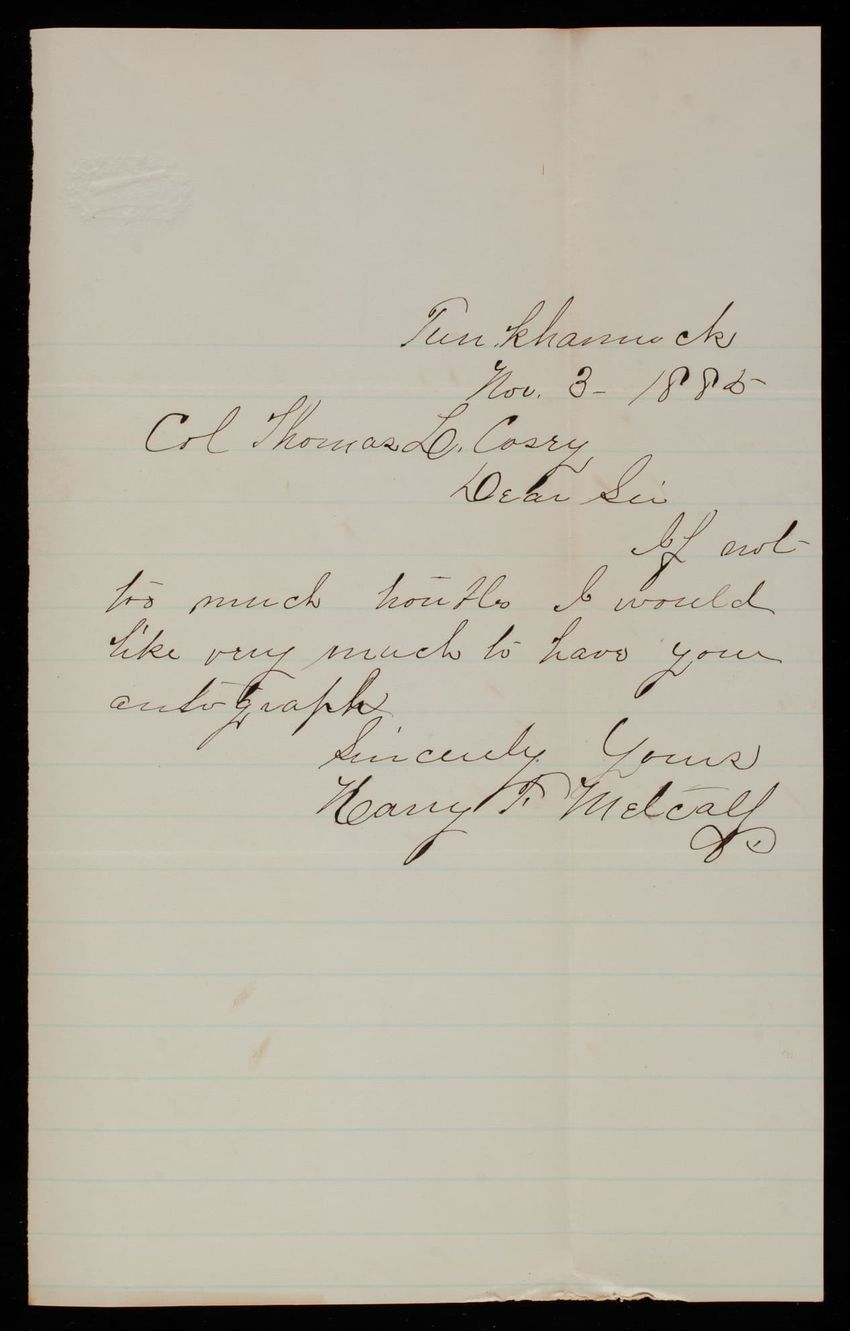 Tunkhannock
Nov. 3 - 1885
Col Thomas L. Casey
Dear Sir
If not
too much trouble I would
like very much to have your
autograph
Sincerely Yours
Harry F. Metcalf